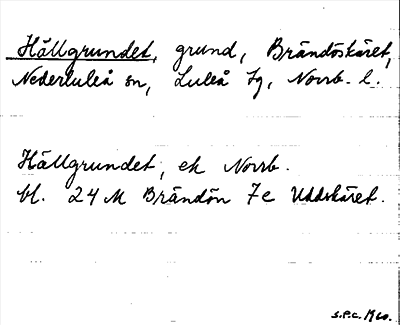 Hällgrundet, grund, Brändöskäret,
Nederluleå sn, Luleå tg, Norrb. l.
Hällgrundet, ek Norrb.
bl. 24 M Brändön 7c Uddskäret.
S.P.C. 1960.